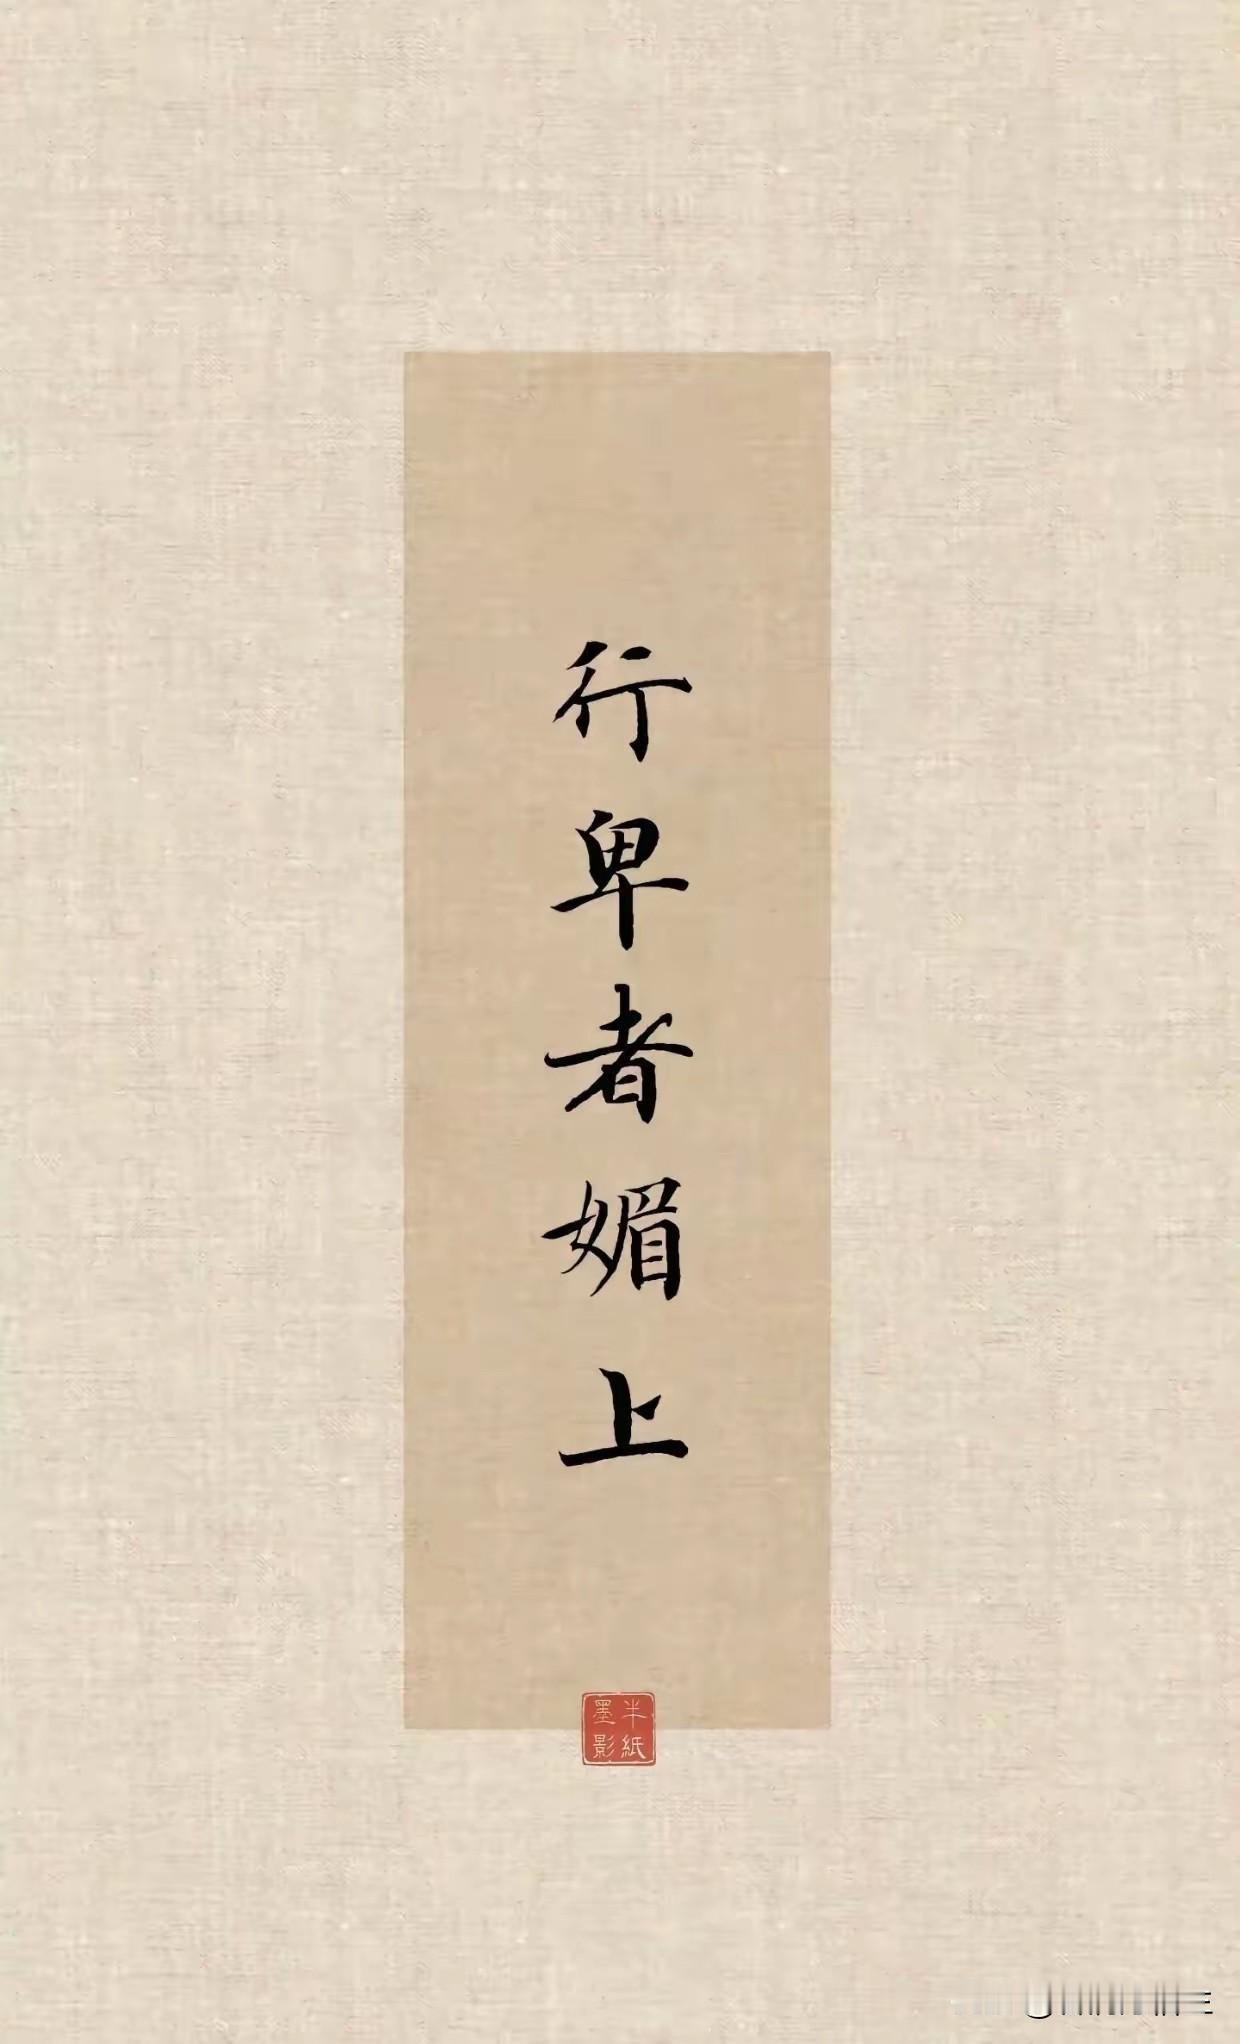 行卑者媚上
半紙
墨影